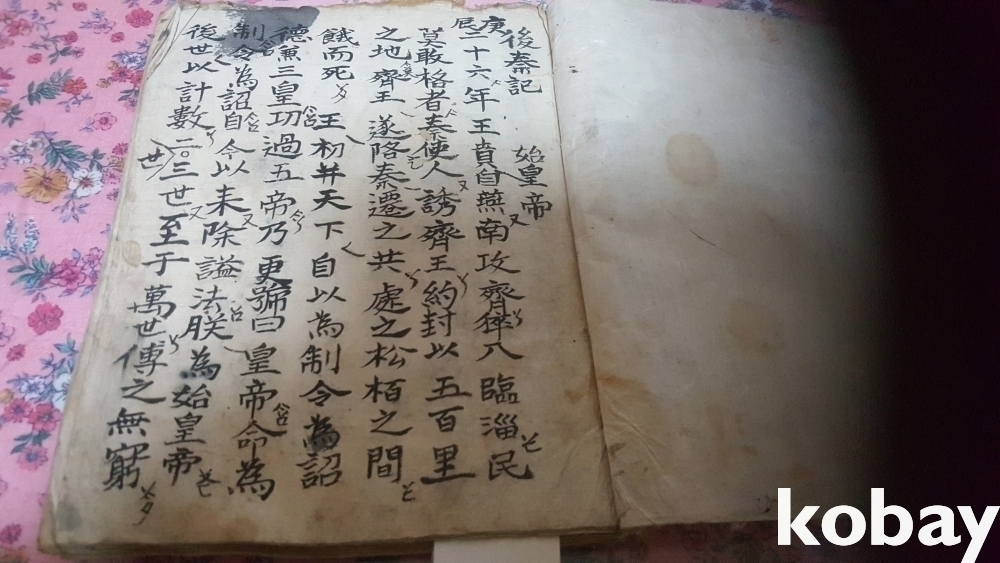 後秦記
始皇帝
庚辰二十六年王賁自燕南攻齊猝入臨淄民
莫敢格者秦使人誘齊王約封以五百里
之地齊王遂降秦遷之共處之松栢之間
餓而死王初并天下自以為制令為詔
德兼三皇功過五帝乃更號曰皇帝命為
制令為詔自今以来除謚法朕為始皇帝
後世以計數二世三世至于萬世傳之無窮
kobay